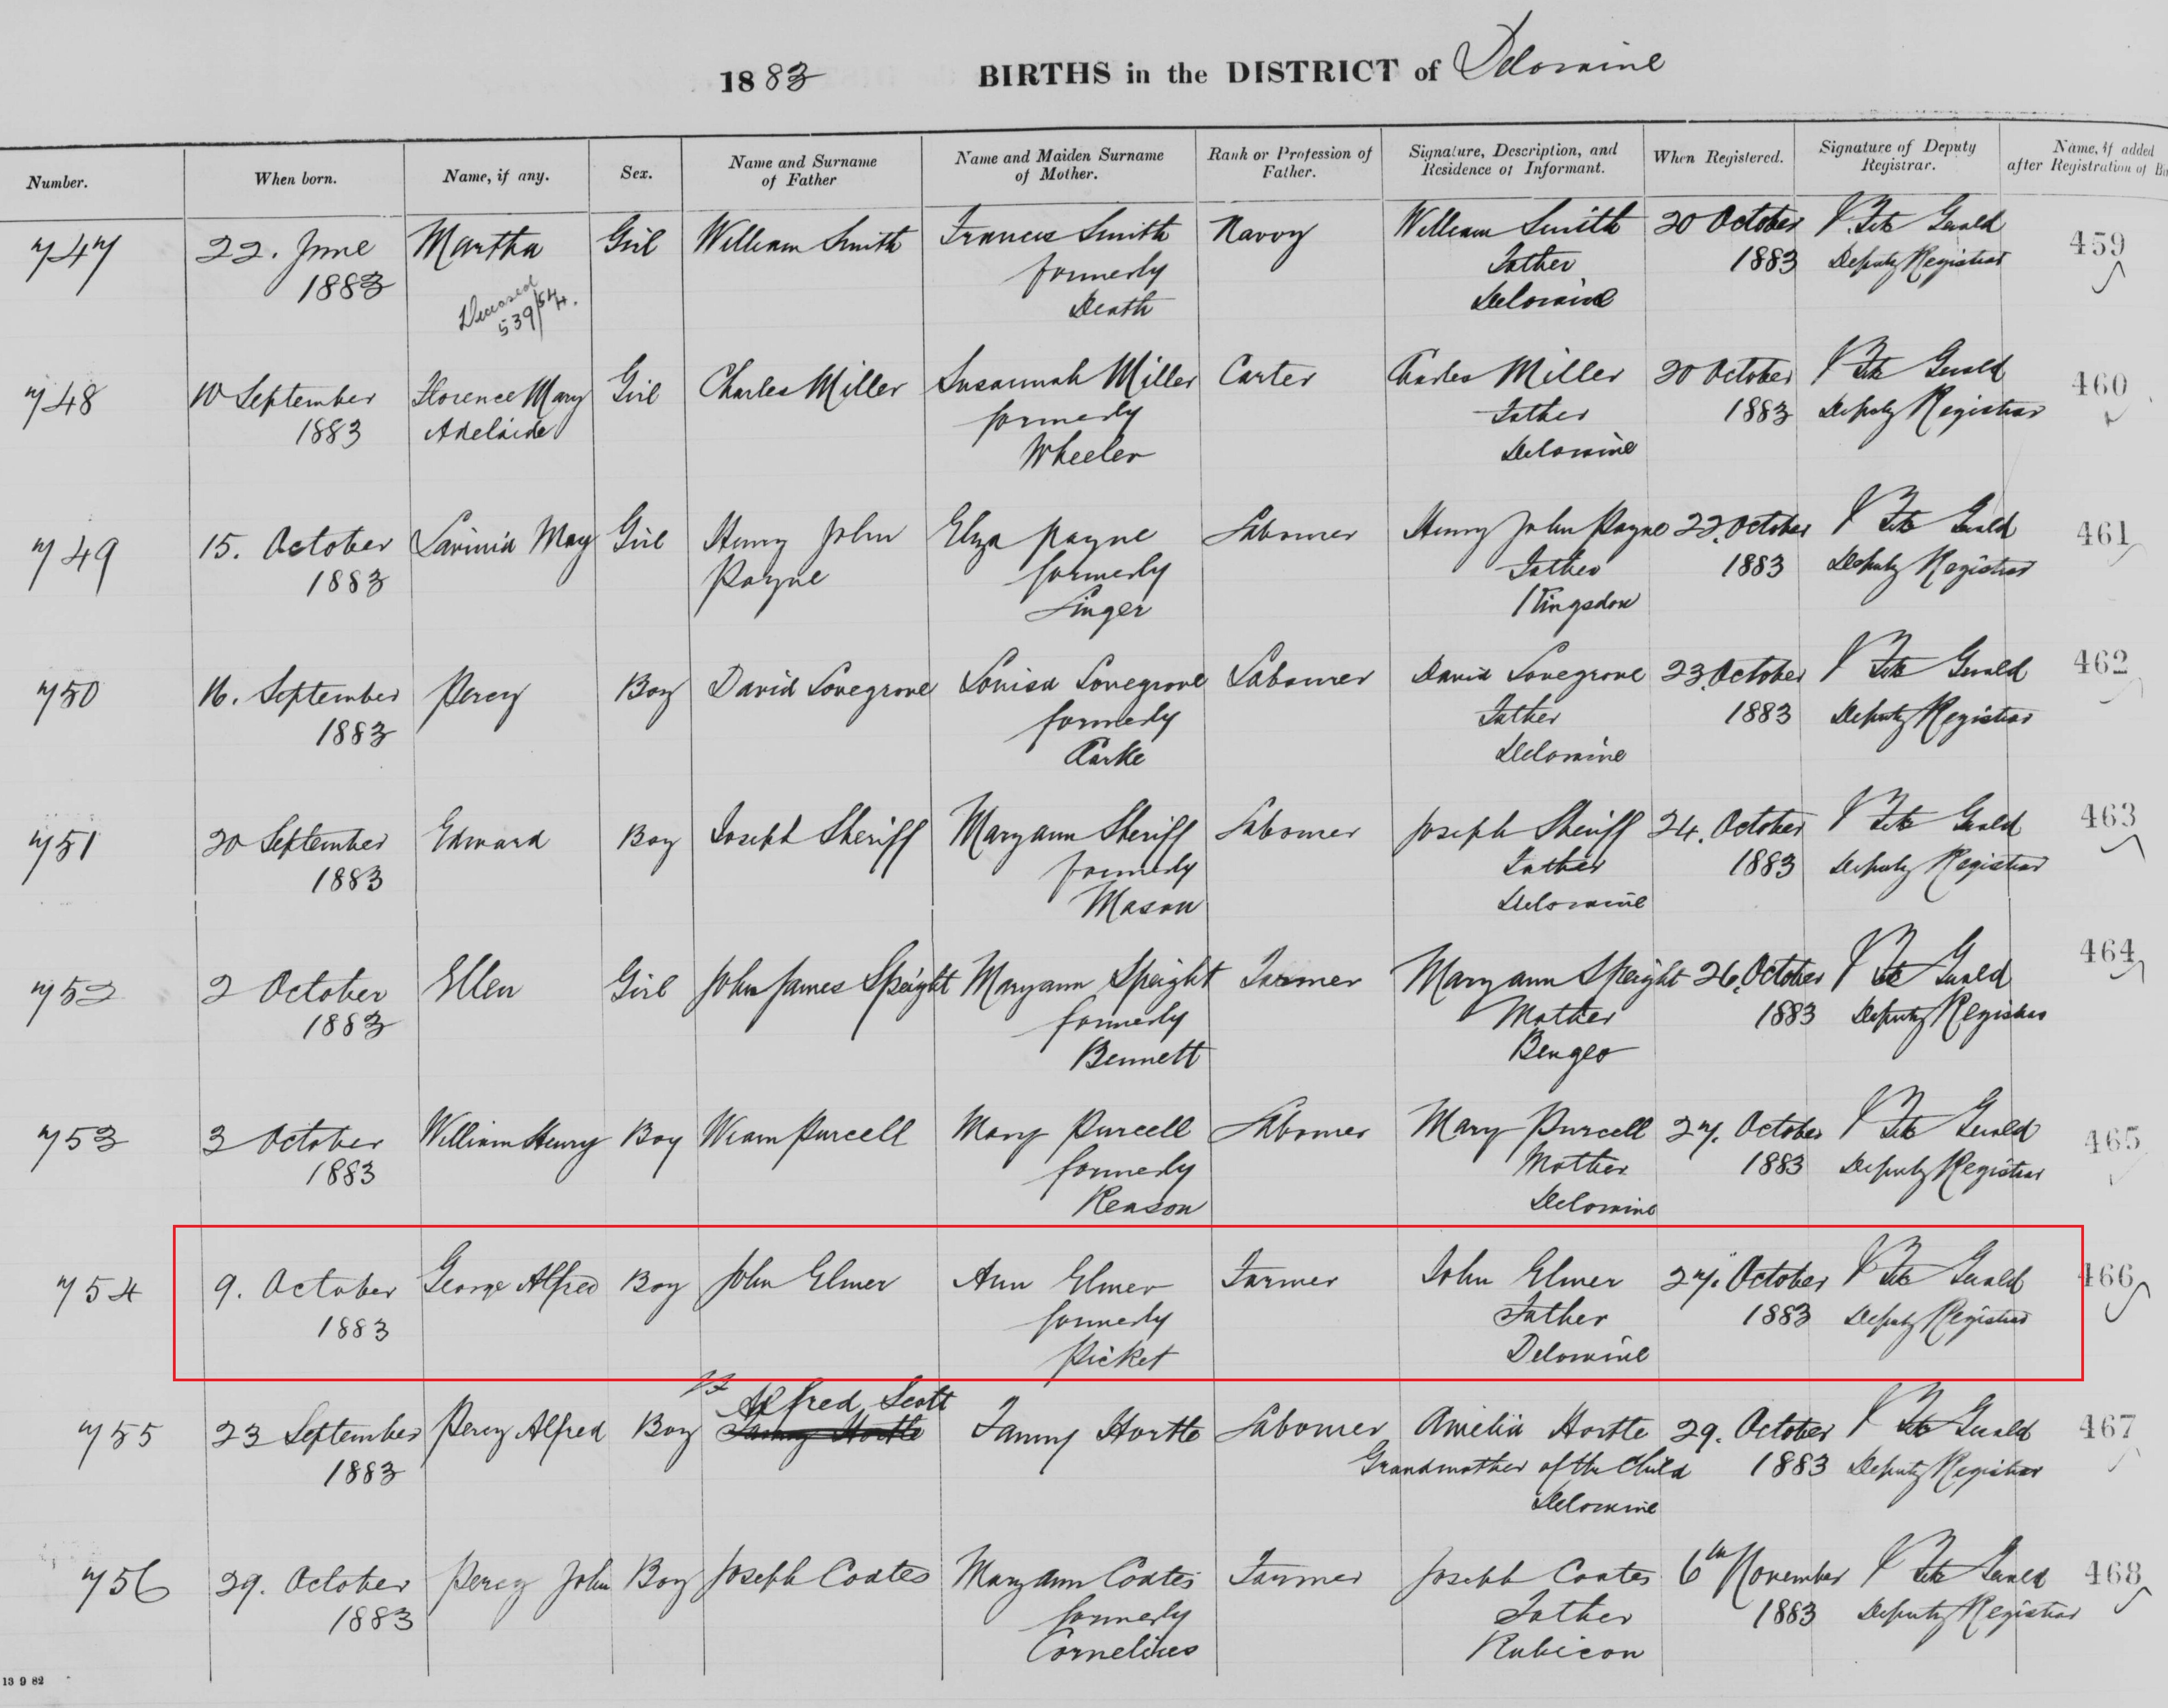 1883 BIRTHS in the DISTRICT of Deloraine
Number. When born. Name, if any. Sex. Name and Surname of Father Name and Maiden Surname of Mother. Rank or Profession of Father. Signature, Description, and Residence of Informant. When Registered. Signature of Deputy Registrar. Name, if added after Registration of
747 22. June Martha Girl William Smith Frances Smith Navvy William Smith 20 October 459
1883 formerly Father 1883 Deputy Registrar
Deceased 539/54 Death Deloraine
748 10 September Florence Mary Girl Charles Miller Susannah Miller Carter Charles Miller 20 October 460
1883 Adelaide formerly Father 1883 Deputy Registrar
Wheeler Deloraine
749 15. October Lavinia May Girl Henry John Eliza Payne Labourer Henry John Payne 22. October 461
1883 Payne formerly Father 1883 Deputy Registrar
Singer Kingsdon
750 16. September Percy Boy David Lovegrove Louisa Lovegrove Labourer David Lovegrove 23. October 462
1883 formerly Father 1883 Deputy Registrar
Clarke Deloraine
751 20 September Edward Boy Joseph Sheriff Maryann Sheriff Labourer Joseph Sheriff 24. October 463
1883 formerly Father 1883 Deputy Registrar
Mason Deloraine
752 2 October Ellen Girl John James Speight Maryann Speight Farmer Maryann Speight 26. October 464
1883 formerly Mother 1883 Deputy Registrar
Bennett Bengeo
753 3 October William Henry Boy Wiam Purcell Mary Purcell Labourer Mary Purcell 27. October 465
1883 formerly Mother 1883 Deputy Registrar
Reason Deloraine
754 9. October George Alfred Boy John Elmer Ann Elmer Farmer John Elmer 27. October 466
1883 formerly Father 1883 Deputy Registrar
Picket Deloraine
Alfred Scott
755 23 September Percy Alfred Boy Fanny Hortle Fanny Hortle Labourer Amelia Hortle 29. October 467
1883 Grandmother of the Child 1883 Deputy Registrar
Deloraine
756 29. October Percy John Boy Joseph Coates Maryann Coates Farmer Joseph Coates 6th November 468
1883 formerly Father 1883 Deputy Registrar
Cornelius Rubicon
13 9 82